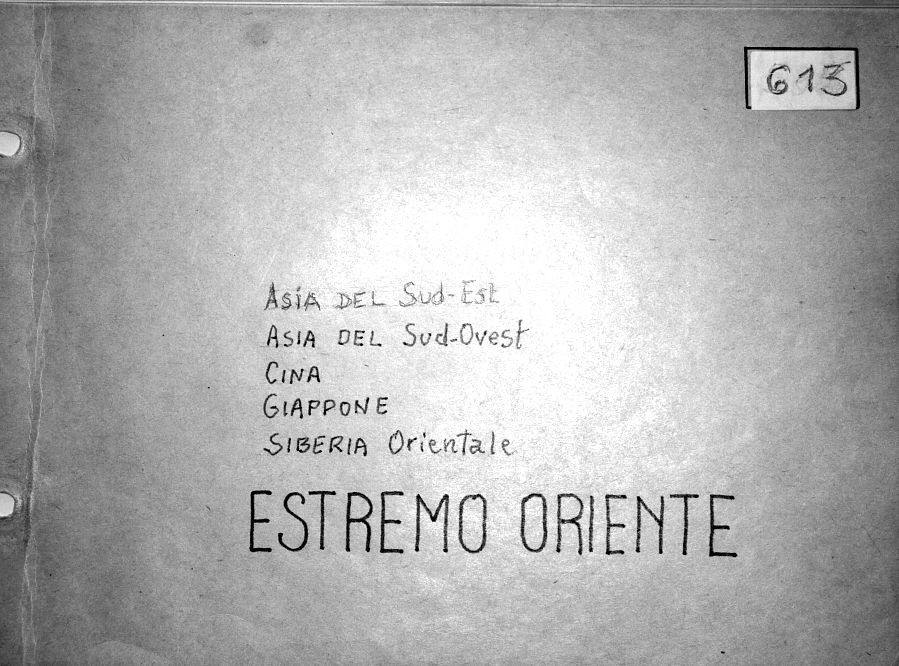 613
Asia del Sud-Est
Asia del Sud-Ovest
Cina
Giappone
Siberia Orientale
ESTREMO ORIENTE